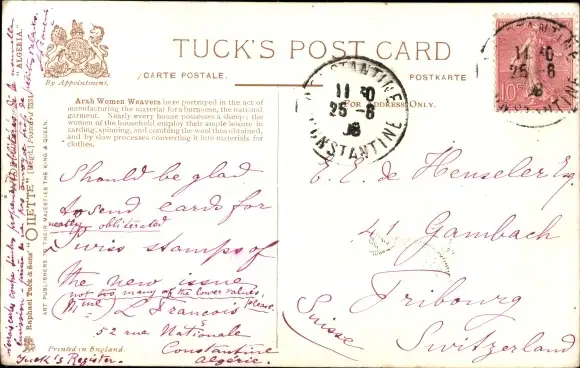 TUCK'S POST CARD
By Appointment.
CARTE POSTALE.
POSTKARTE
FOR ADDRESS ONLY.
Arab Women Weavers here portrayed in the act of
manufacturing the material for a burnouse, the national
garment. Nearly every house possesses a sheep; the
women of the household employ their ample leisure in
carding, spinning, and combing the wool thus obtained,
and by slow processes converting it into materials for
clothes.
Should be glad
to send cards for
neatly obliterated
Swiss stamps of
the new issue
not too many of the lower values, please.
(Mme) L. Francois
52 rue Nationale
Constantine
Algérie.
E. E. de Henseler Esq.
41 Gambach
Fribourg
Switzerland
Suisse
CONSTANTINE
11 30
25-6
08
CONSTANTINE
CONSTANTINE
11 30
25-6
08
CONSTANTINE
10c
Raphael Tuck & Sons' "OILETTE" [Regd.] Postcard 7351. "ALGERIA."
ART PUBLISHERS TO THEIR MAJESTIES THE KING & QUEEN.
Printed in England.
Tuck's Register.